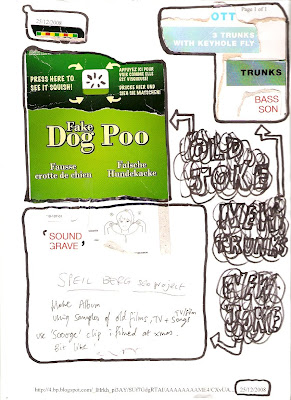 23/12/2008
Page 1 of 1
OTT
3 TRUNKS
WITH KEYHOLE FLY
TRUNKS
BASS
SON
PRESS HERE TO
SEE IT SQUISH!
APPUYEZ ICI POUR
VOIR COMME ELLE
EST VISQUEUSE!
DRÜCKE HIER UND
SIEH SIE MATSCHEN!
Fake
Dog Poo
Fausse
crotte de chien
Falsche
Hundekacke
OLD
JOKE
NEW
TRUNKS
NEW
TAKE
'SOUND
GRAVE'
SPEIL BERG project
Make Album
using samples of old films, TV + songs
TV/film
use 'Scrooge' clip i filmed at xmas.
Bit like
23/12/2008